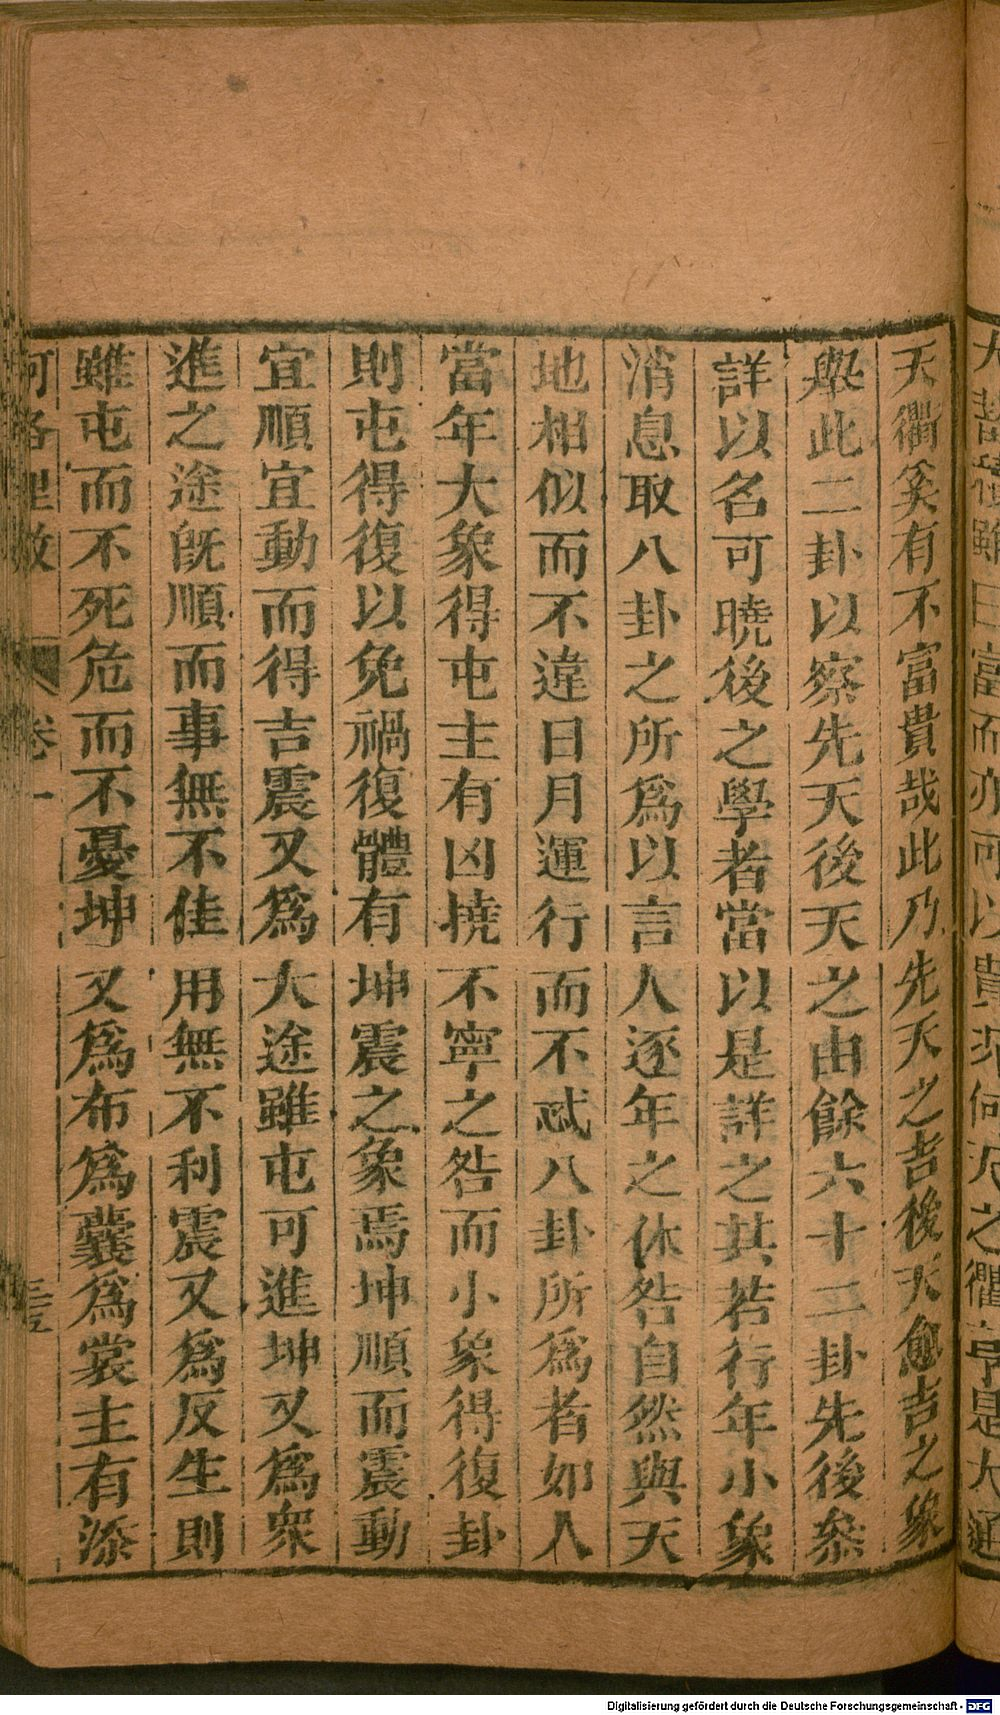 天衢奚有不富貴哉此乃先天之吉後天愈吉之象
舉此二卦以察先天後天之由餘六十二卦先後叅
詳以名可曉後之學者當以是詳之其若行年小象
消息取八卦之所爲以言人逐年之休咎自然與天
地相似而不違日月運行而不忒八卦所爲者如人
當年大象得屯主有凶撓不寧之咎而小象得復卦
則屯得復以免禍復體有坤震之象焉坤順而震動
宜順宜動而得吉震又爲大途雖屯可進坤又爲衆
進之途旣順而事無不佳用無不利震又爲反生則
雖屯而不死危而不憂坤又爲布爲囊爲裳主有添
河洛理數
卷一
Digitalisierung gefördert durch die Deutsche Forschungsgemeinschaft - DFG